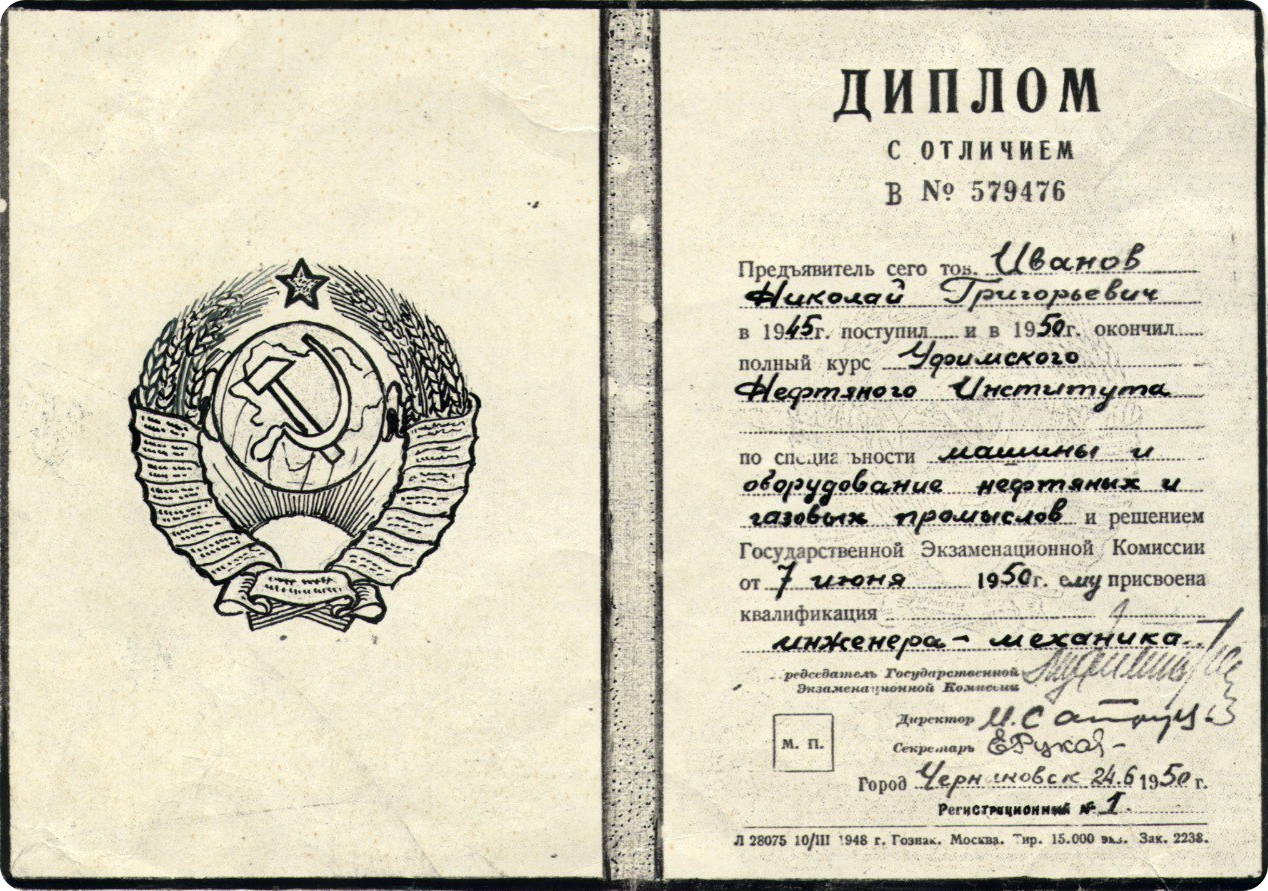 ДИПЛОМ
С ОТЛИЧИЕМ
В № 579476
Предъявитель сего тов. Иванов
Николай Григорьевич
в 1945г. поступил и в 1950г. окончил
полный курс Уфимского
Нефтяного Института
по специальности машины и
оборудование нефтяных и
газовых промыслов и решением
Государственной Экзаменационной Комиссии
от 7 июня 1950г. ему присвоена
квалификация
инженера-механика
редседатель Государственной
Экзаменационной Комиссии
Директор
Секретарь
М. П.
Город Черниковск 24.6 1950 г.
Регистрационный № 1.
Л 28075 10/III 1948 г. Гознак. Москва. Тир. 15.000 экз. Зак. 2238.